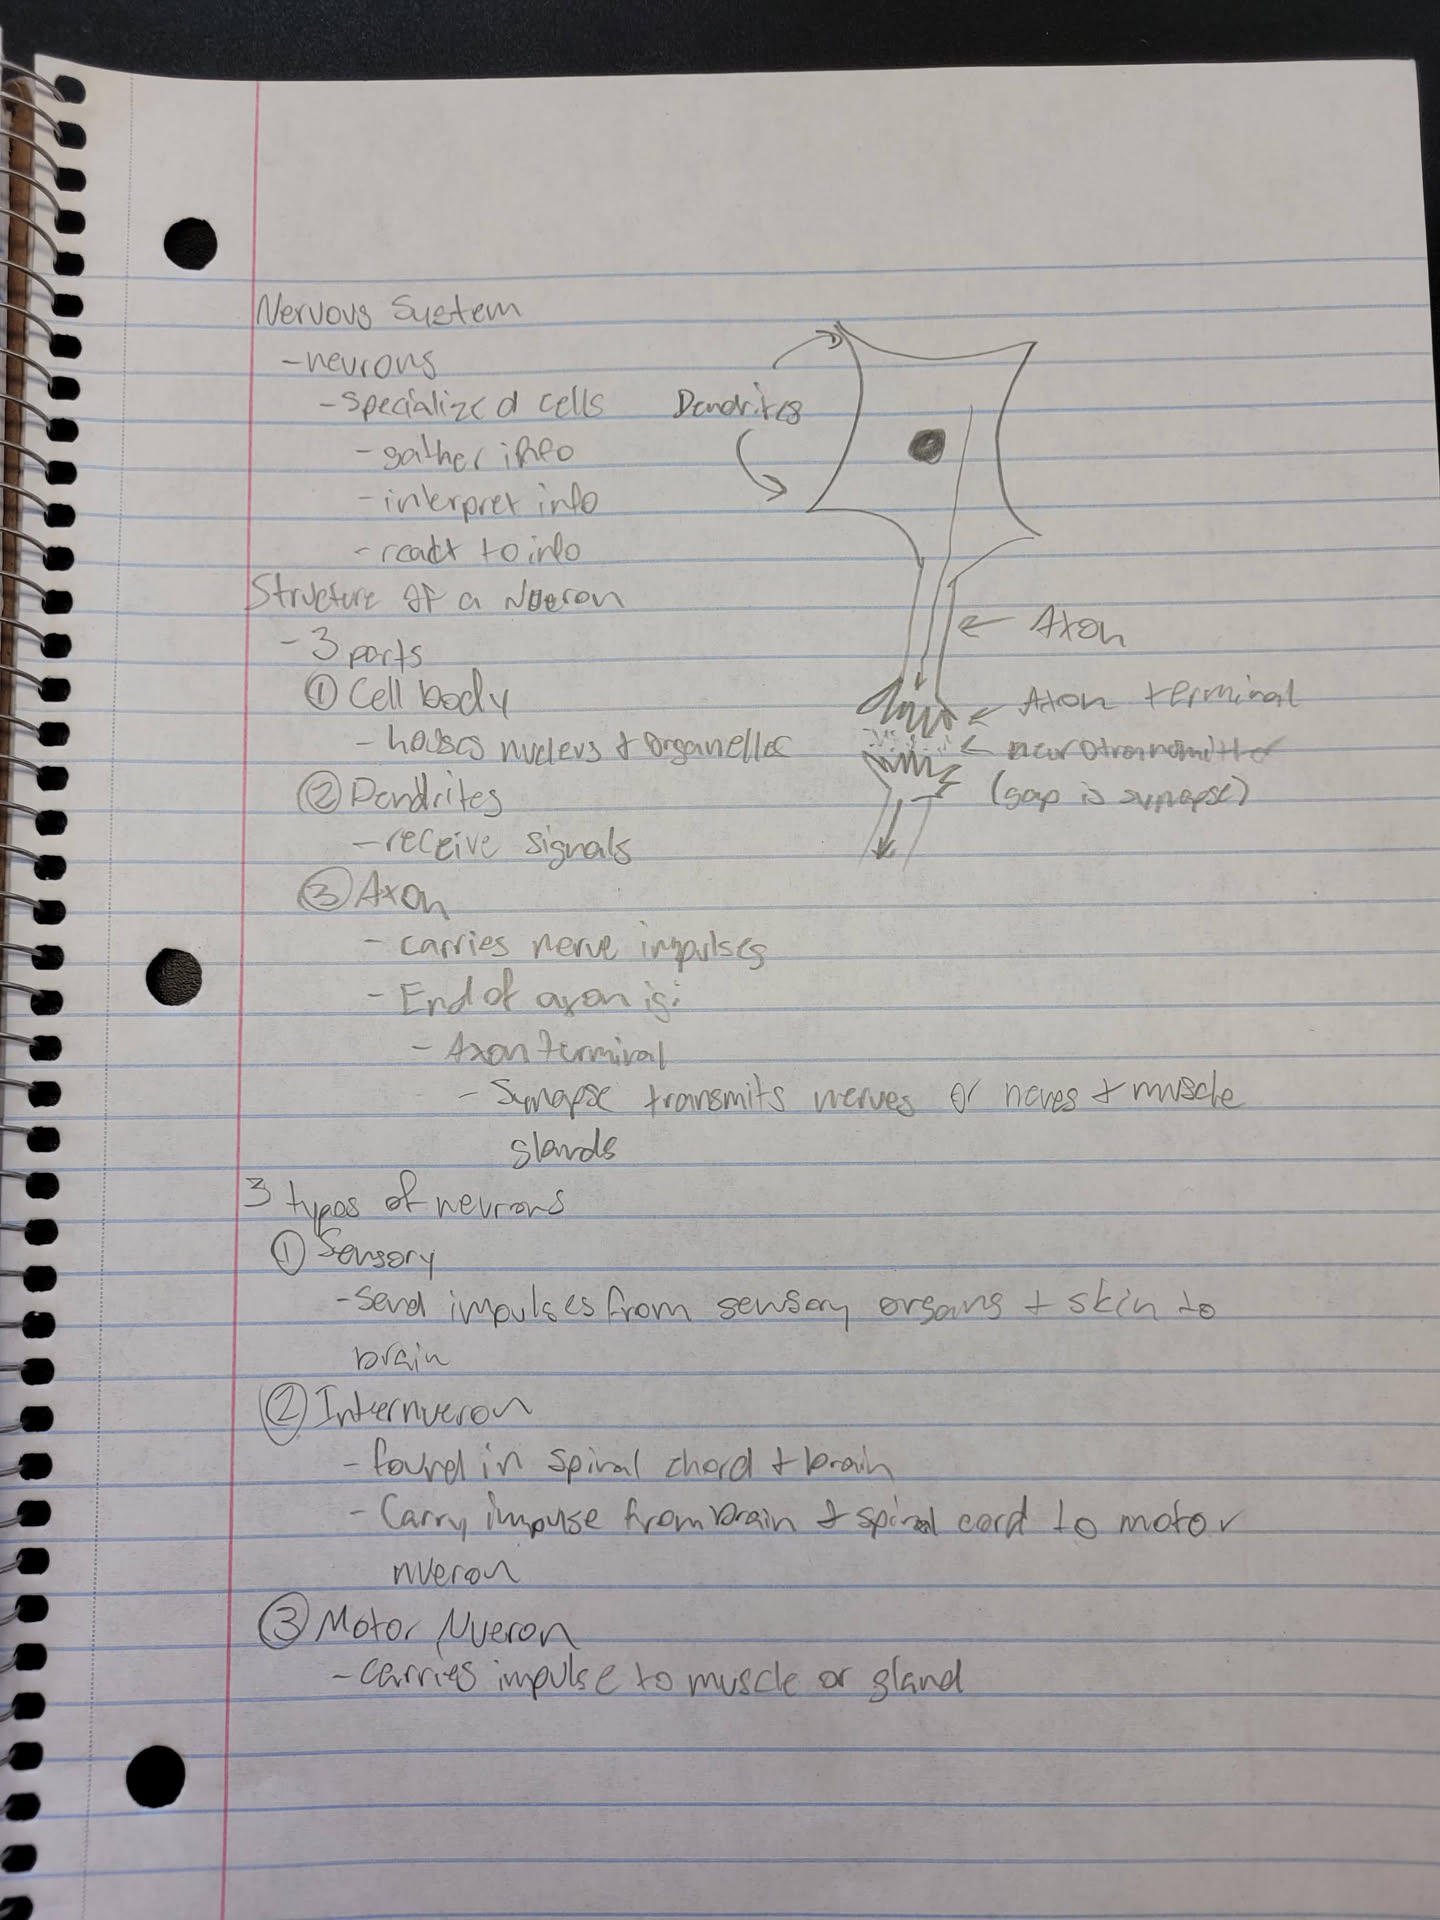 Nervous System
- neurons
- specialized cells
Dendrites
- gather info
- interpret info
- react to info
Structure of a Nueron
- 3 parts
Axon
① Cell body
Axon terminal
- houses nucleus + organelles
neurotransmitter
② Dendrites
(gap is synapse)
- receive signals
③ Axon
- carries nerve impulses
- End of axon is:
- Axon terminal
- Synapse transmits nerves or neves + muscle
glands
3 types of neurons
① Sensory
- send impulses from sensory organs + skin to
brain
② Internueron
- found in spinal chord + brain
- Carry impuse from brain + spinal cord to motor
nueron
③ Motor Nueron
- carries impulse to muscle or gland